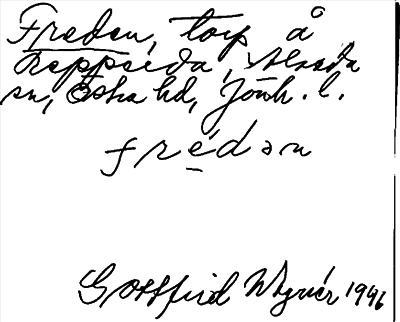 Freden, torp å
Reppseda, Alseda
sn, Östra hd, Jönk. l.
frédən
Gottfrid Wigner 1996